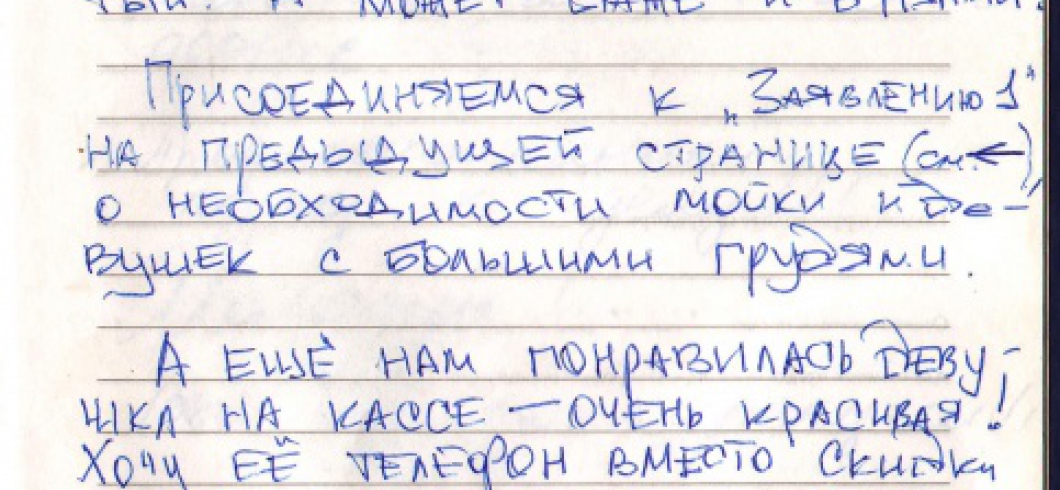 может даже и
Присоединяемся к „Заявлению 1"
на предыдущей странице (см.←)
о необходимости мойки и де-
вушек с большими грудями.
А ещё нам понравилась деву-
шка на кассе — очень красивая!
Хочу её телефон вместо скидки